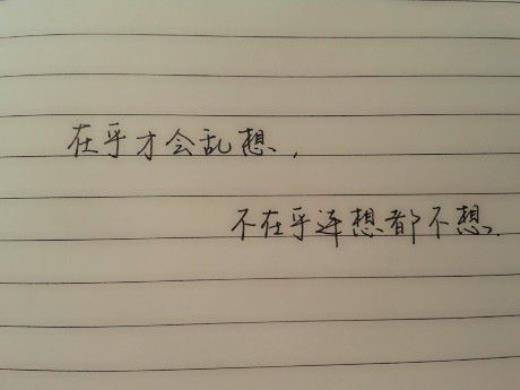 在乎才会乱想，
不在乎连想都不想。